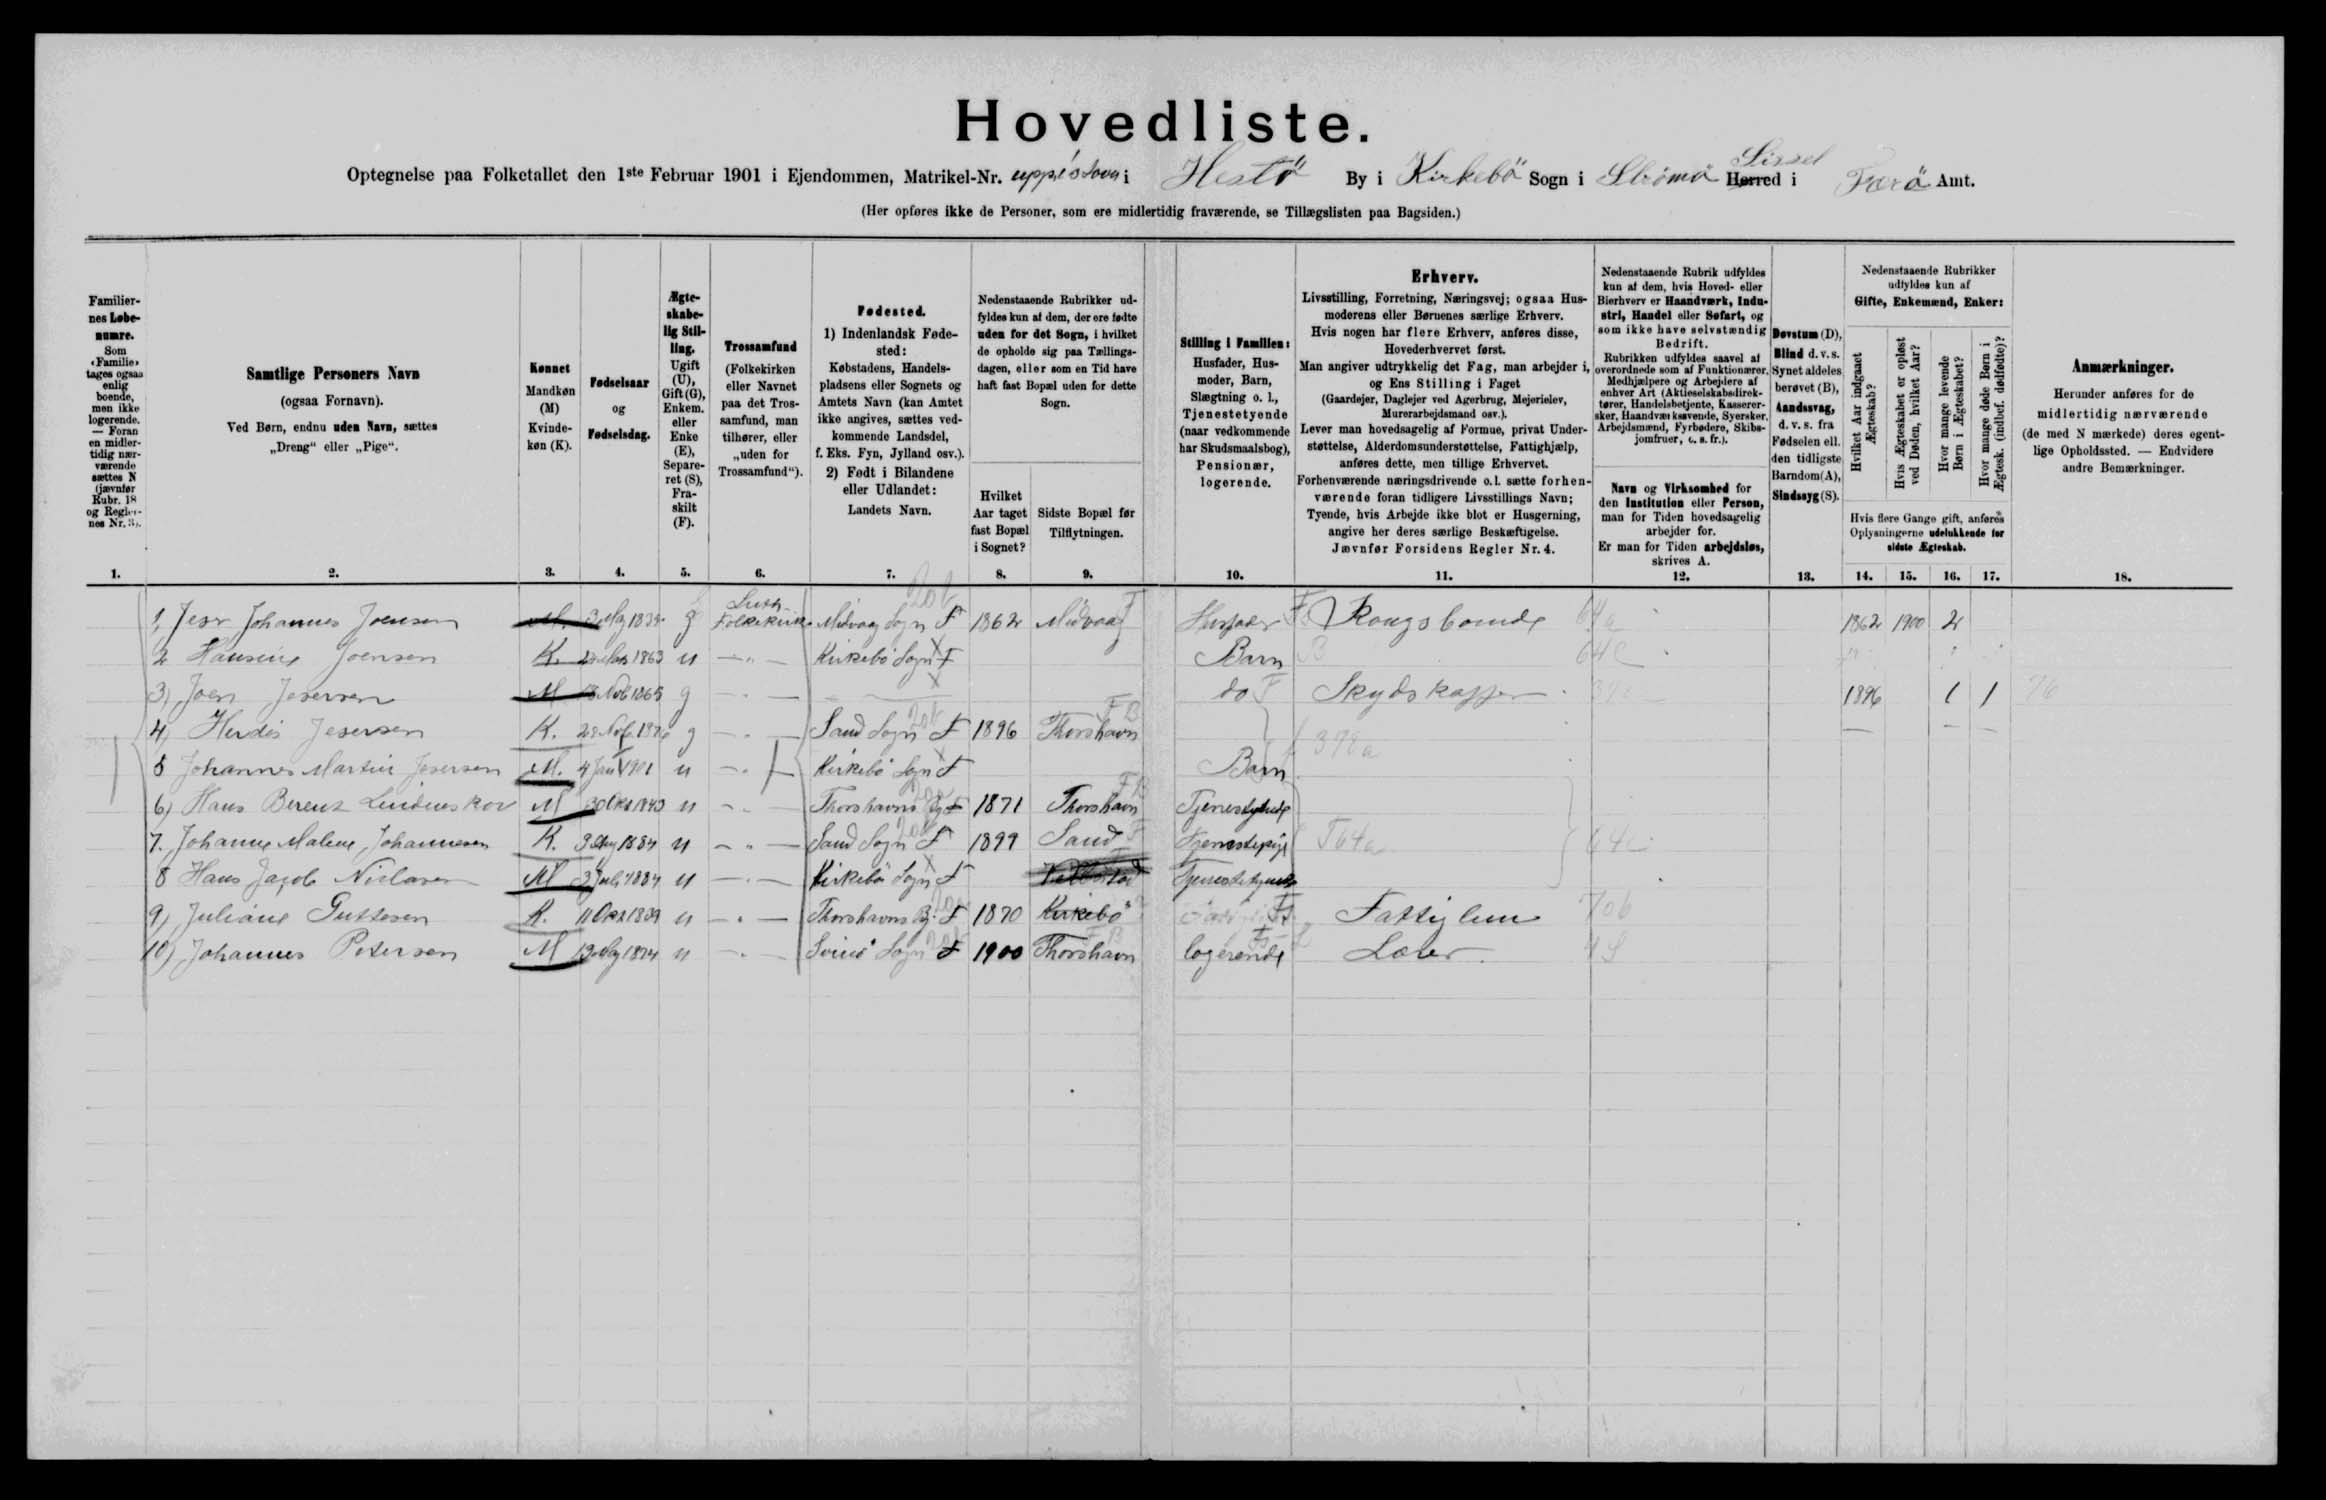 Hovedliste.
Optegnelse paa Folketallet den 1ste Februar 1901 i Ejendommen, Matrikel-Nr. uppistovu i Hestö By i Kirkebö Sogn i Strömö Sissel Herred i Færö Amt.
(Her opføres ikke de Personer, som ere midlertidig fraværende, se Tillægslisten paa Bagsiden.)
Familiernes Løbenumre.
Som «Familie» tages ogsaa enlig boende, men ikke logerende. — Foran en midlertidig nærværende sættes N (jævnfør Rubr. 18 og Reglernes Nr. 3).
Samtlige Personers Navn
(ogsaa Fornavn).
Ved Børn, endnu uden Navn, sættes
„Dreng“ eller „Pige“.
Kønnet
Mandkøn (M)
Kvindekøn (K).
Fødselsaar
og
Fødselsdag.
Ægteskabelig Stilling.
Ugift (U), Gift (G), Enkem. eller Enke (E), Separeret (S), Fraskilt (F).
Trossamfund
(Folkekirken eller Navnet paa det Trossamfund, man tilhører, eller „uden for Trossamfund“).
Fødested.
1) Indenlandsk Fødested:
Købstadens, Handelspladsens eller Sognets og Amtets Navn (kan Amtet ikke angives, sættes vedkommende Landsdel, f. Eks. Fyn, Jylland osv.).
2) Født i Bilandene eller Udlandet:
Landets Navn.
Nedenstaaende Rubrikker udfyldes kun af dem, der ere fødte uden for det Sogn, i hvilket de opholde sig paa Tællingsdagen, eller som en Tid have haft fast Bopæl uden for dette Sogn.
Hvilket Aar taget fast Bopæl i Sognet?
Sidste Bopæl før Tilflytningen.
Stilling i Familien:
Husfader, Husmoder, Barn, Slægtning o. l., Tjenestetyende (naar vedkommende har Skudsmaalsbog), Pensionær, logerende.
Erhverv.
Livsstilling, Forretning, Næringsvej; ogsaa Husmoderens eller Børnenes særlige Erhverv.
Hvis nogen har flere Erhverv, anføres disse, Hovederhvervet først.
Man angiver udtrykkelig det Fag, man arbejder i, og Ens Stilling i Faget
(Gaardejer, Daglejer ved Agerbrug, Mejerielev, Murerarbejdsmand osv.).
Lever man hovedsagelig af Formue, privat Understøttelse, Alderdomsunderstøttelse, Fattighjælp, anføres dette, men tillige Erhvervet.
Forhenværende næringsdrivende o.l. sætte forhenværende foran tidligere Livsstillings Navn;
Tyende, hvis Arbejde ikke blot er Husgerning, angive her deres særlige Beskæftigelse.
Jævnfør Forsidens Regler Nr. 4.
Nedenstaaende Rubrik udfyldes kun af dem, hvis Hoved- eller Bierhverv er Haandværk, Industri, Handel eller Søfart, og som ikke have selvstændig Bedrift.
Rubrikken udfyldes saavel af overordnede som af Funktionærer, Medhjælpere og Arbejdere af enhver Art (Aktieselskabsdirektører, Handelsbetjente, Kasserersker, Haandværkssvende, Syersker, Arbejdsmænd, Fyrbødere, Skibsjomfruer, o. s. fr.).
Navn og Virksomhed for den Institution eller Person, man for Tiden hovedsagelig arbejder for.
Er man for Tiden arbejdsløs, skrives A.
Døvstum (D), Blind d. v. s. Synet aldeles berøvet (B), Aandssvag, d. v. s. fra Fødselen ell. den tidligste Barndom (A), Sindssyg (S).
Nedenstaaende Rubrikker udfyldes kun af
Gifte, Enkemænd, Enker:
Hvilket Aar indgaaet Ægteskab?
Hvis Ægteskabet er opløst ved Døden, hvilket Aar?
Hvor mange levende Børn i Ægteskabet?
Hvor mange døde Børn i Ægtesk. (indbef. dødfødte)?
Hvis flere Gange gift, anføres Oplysningerne udelukkende for sidste Ægteskab.
Anmærkninger.
Herunder anføres for de midlertidig nærværende (de med N mærkede) deres egentlige Opholdssted. — Endvidere andre Bemærkninger.
1. 2. 3. 4. 5. 6. 7. 8. 9. 10. 11. 12. 13. 14. 15. 16. 17. 18.
1, Johannes Joensen M. g Luth. Folkekirke Midvaag Sogn F 1862 Midvaag Husfader Kongsbonde 64a 1862 1900 2
2 Hansine Joensen K. 1863 u Kirkebö Sogn F Barn 64c
3) Joen Jesersen M g do Skydskaffer 1896 1 1 76
4) Herdis Jesersen K. g Sand Sogn F 1896 Thorshavn 378a
5 Johannes Martin Jesersen M. 4 Jan 1901 u Kirkebö Sogn F Barn
6) Hans Berent Lindenskov M u Thorshavns By F 1871 Thorshavn Tjenestetyende
7. Johanne Malene Johannesen K. 1884 u Sand Sogn F 1899 Sand Tjenestepige 64c
8 Hans Jacob Niclasen M 3 Juli 1884 u Kirkebö Sogn F Tjenestetyende
9) Juliane Guttesen K. 11 Okt 1839 u Thorshavns By F 1870 Kirkebö Fattiglem 70b
10) Johannes Petersen M u Svinö Sogn F 1900 Thorshavn logerende Lærer